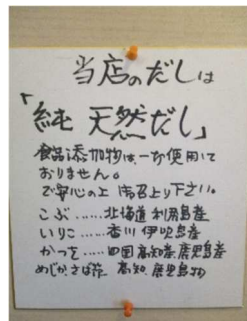 当店のだしは
「純 天然だし」
食品添加物は一切使用して
おりません。
ご安心の上 御召上り下さい。
こぶ……北海道 利尻島産
いりこ……香川 伊吹島産
かつを……四国 高知産 鹿児島産
めじか、さば節、高知、鹿児島物